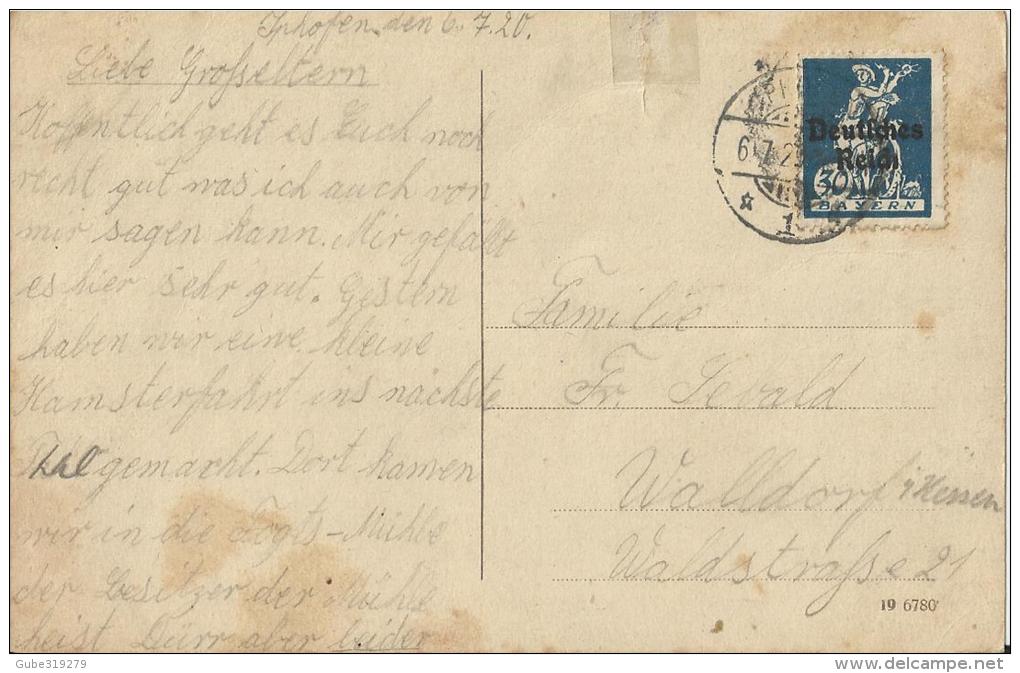 Iphofen den 6.7.20.
Liebe Großeltern
Hoffentlich geht es Euch noch
recht gut was ich auch von
mir sagen kann. Mir gefällt
es hier sehr gut. Gestern
haben wir eine kleine
Hamsterfahrt ins nächste
Thal gemacht. Dort kamen
wir in die Vogts-Mühle
der Besitzer der Mühle
heist Dürr aber leider
6.7.2
Deutsches
Reich
30
BAYERN
Familie
Fr. Sebald
Walldorf i/Hessen
Waldstraße 21
19 6780
Gube319279
delcampe.net